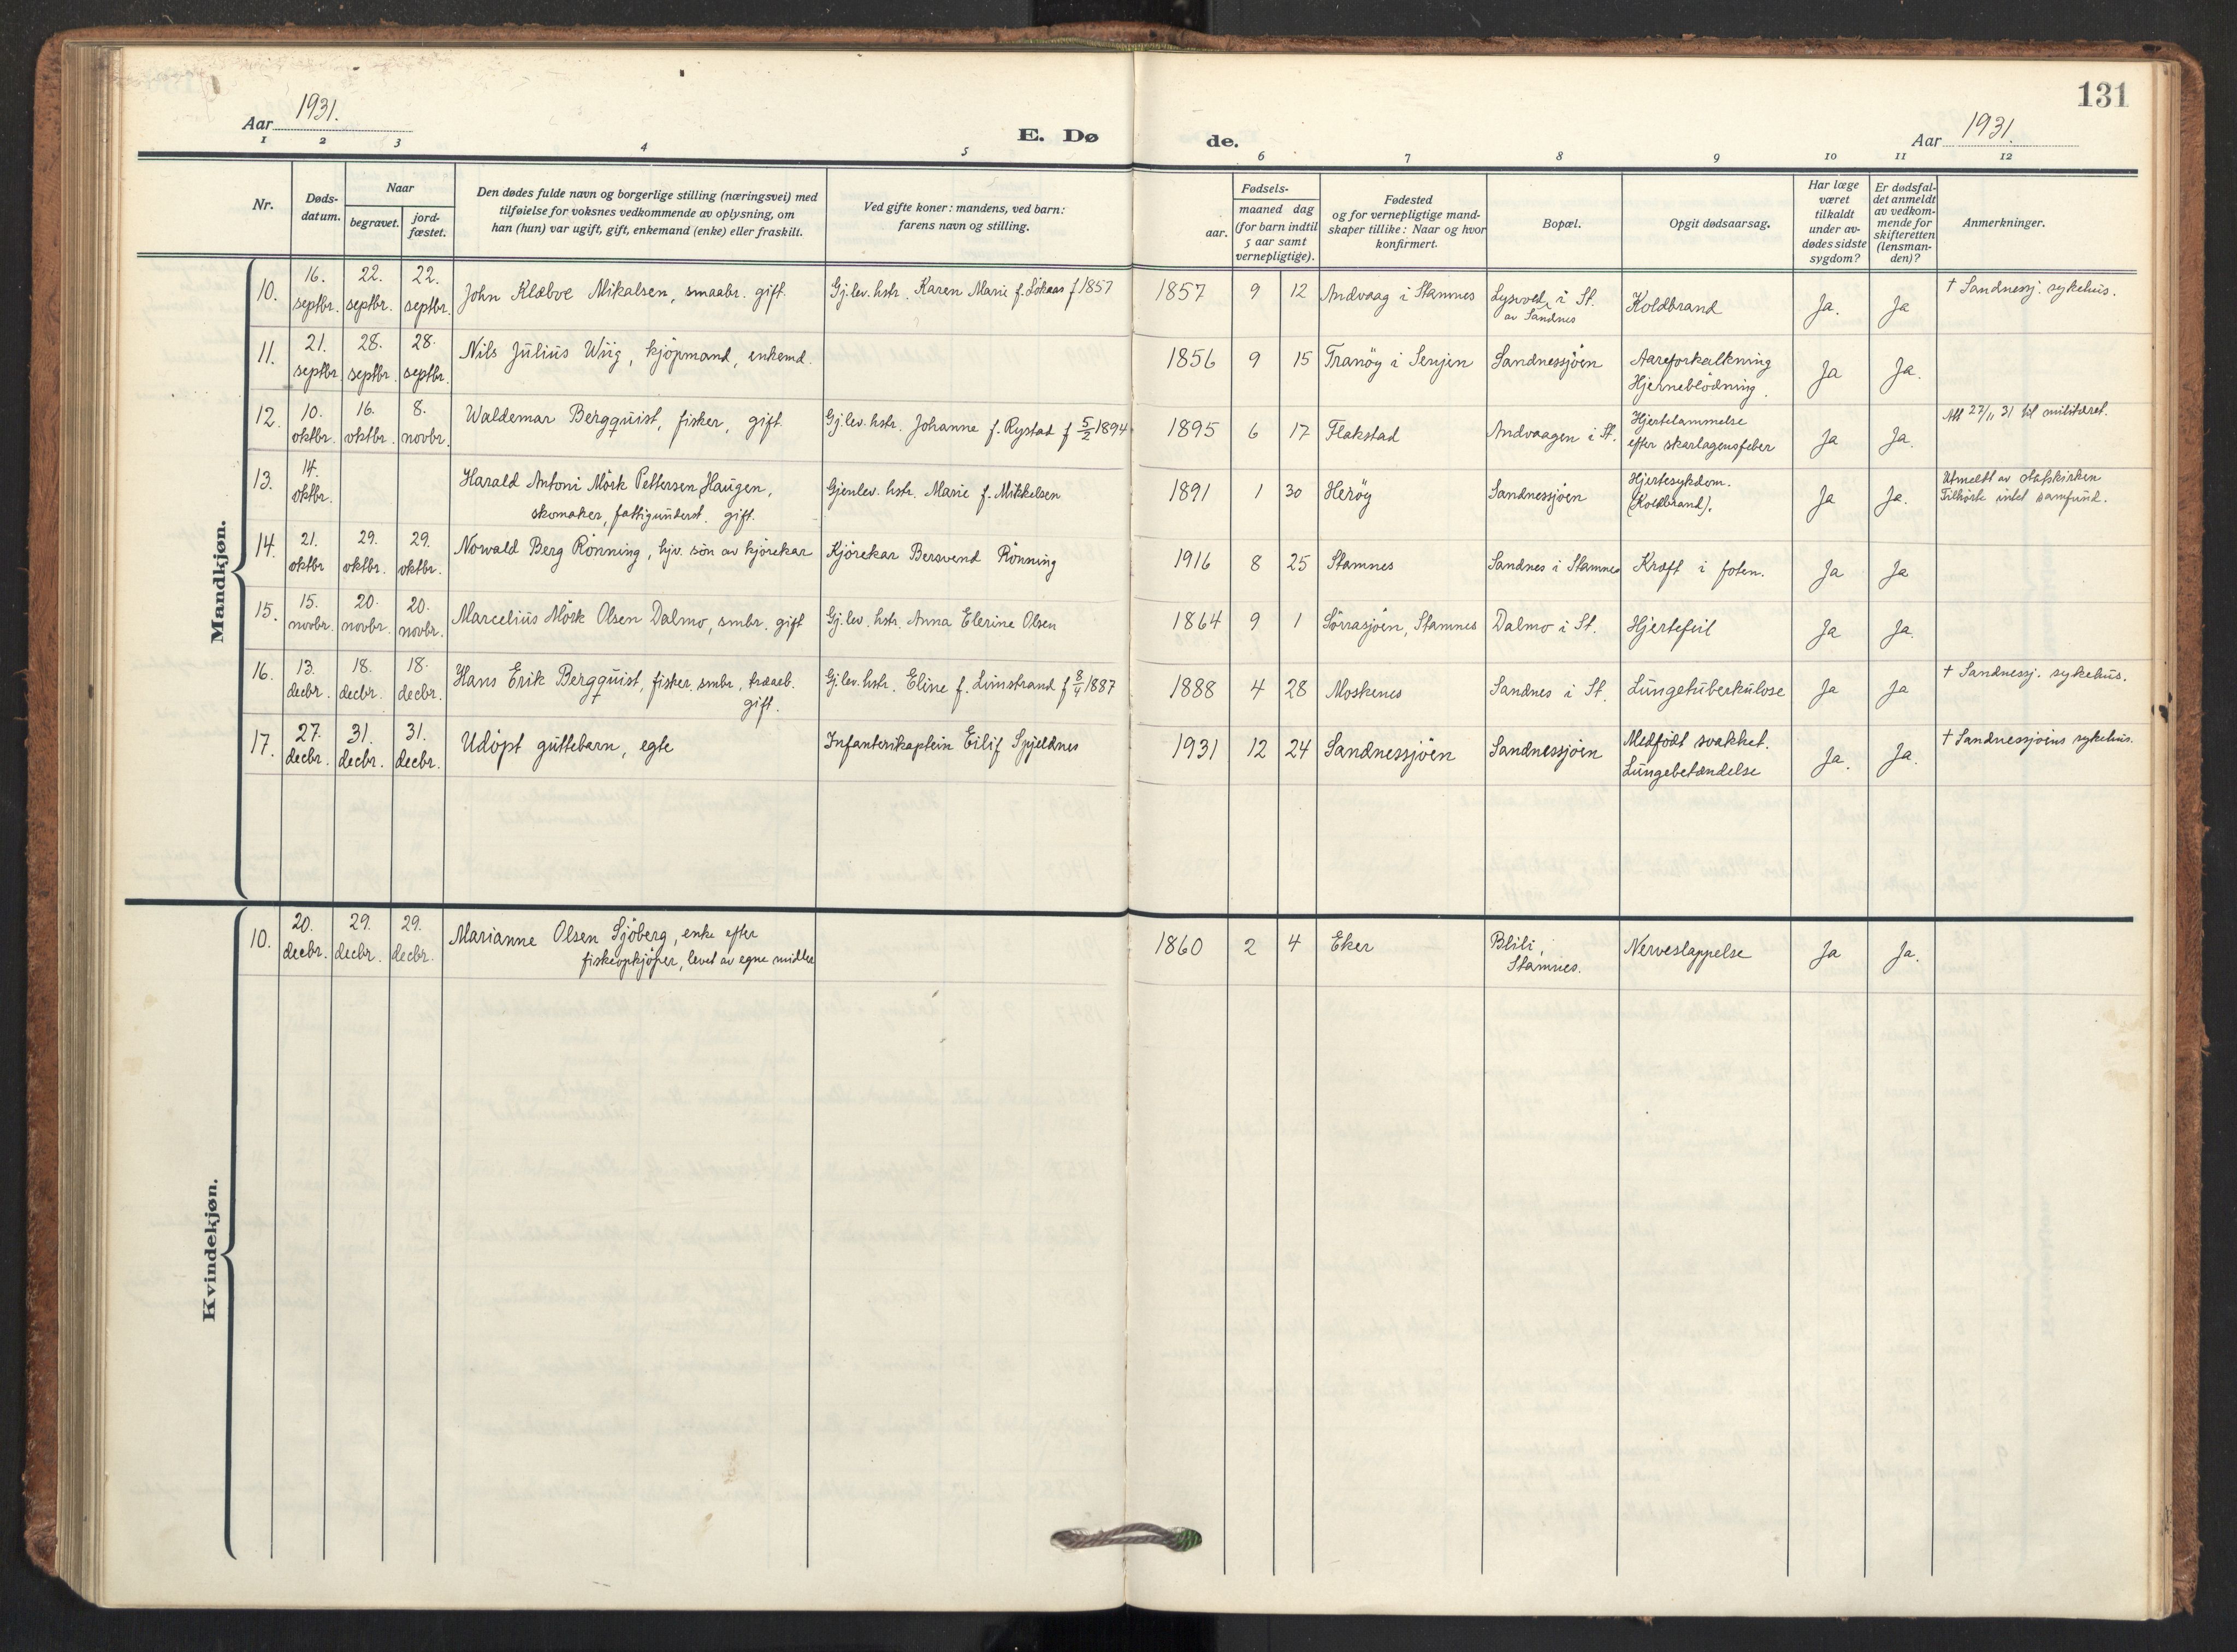 131
Aar 1931.
E. Døde.
Aar 1931.
1 2 3 4 5 6 7 8 9 10 11 12
Nr.
Døds-datum.
Naar
begravet.
jord-fæstet.
Den dødes fulde navn og borgerlige stilling (næringsvei) med
tilføielse for voksnes vedkommende av oplysning, om
han (hun) var ugift, gift, enkemand (enke) eller fraskilt.
Ved gifte koner: mandens, ved barn:
farens navn og stilling.
Fødsels-
aar.
maaned dag
(for barn indtil
5 aar samt
vernepligtige).
Fødested
og for vernepligtige mand-
skaper tillike: Naar og hvor
konfirmert.
Bopæl.
Opgit dødsaarsag.
Har læge
været
tilkaldt
under av-
dødes sidste
sygdom?
Er dødsfal-
det anmeldt
av vedkom-
mende for
skifteretten
(lensman-
den)?
Anmerkninger.
Mandkjøn.
10. 16. septbr. 22. septbr. 22. septbr. John Klæboe Mikalsen, smaabr. gift. Gj.lev. hstr. Karen Marie f. Lökaas f 1857 1857 9 12 Andvaag i Stamnes Lysvold, i St. av Sandnes Koldbrand Ja. Ja † Sandnessj. sykehus.
11. 21. septbr. 28. septbr. 28. septbr. Nils Julius Wiig, kjöpmand, enkemd. 1856 9 15 Tranöy i Senjen Sandnessjöen Aareforkalkning Hjerneblödning. Ja Ja.
12. 10. oktbr. 16. oktbr. 8. novbr. Waldemar Bergquist, fisker, gift. Gj.lev. hstr. Johanne f. Rystad f 5/2 1894 1895 6 17 Flakstad Andvaagen i St. Hjertelammelse efter skarlagensfeber Ja Ja. Att 27/11 31 til militæret.
13. 14. oktbr. Harald Antoni Mörk Pettersen Haugen, skomaker, fattigunderst. gift. Gjenlev. hstr. Marie f. Mikkelsen 1891 1 30 Heröy Sandnessjöen Hjertesykdom. (Koldbrand). Ja Ja. Utmeldt av statskirken Tilhörte intet samfund.
14. 21. oktbr 29. oktbr. 29. oktbr. Norvald Berg Rönning, hjv. sön av kjörekar Kjörekar Bersvend Rönning 1916 8 25 Stamnes Sandnes i Stamnes Kræft i foten. Ja Ja
15. 15. novbr. 20. novbr. 20. novbr. Marcelius Mörk Olsen Dalmo, smbr. gift Gj.lev. hstr. Anna Elerine Olsen 1864 9 1 Sörrasjöen, Stamnes Dalmo i St. Hjertefeil Ja Ja.
16. 13. decbr. 18. decbr. 18. decbr. Hans Erik Bergquist, fisker, smbr., træarb. gift. Gj.lev. hstr. Eline f. Limstrand f 8/4 1887 1888 4 28 Moskenes Sandnes i St. Lungetuberkulose Ja Ja † Sandnessj. sykehus.
17. 27. decbr. 31. decbr. 31. decbr. Udöpt guttebarn, egte Infanterikaptein Eilif Spjeldnes 1931 12 24 Sandnessjöen Sandnessjöen Medfödt svakhet. Lungebetændelse Ja. Ja. † Sandnessjöens sykehus.
Kvindekjøn.
10. 20. decbr. 29. decbr. 29. decbr. Marianne Olsen Sjöberg, enke efter fiskeopkjöper, levet av egne midler 1860 2 4 Eker Blili, Stamnes. Nerveslappelse Ja Ja.